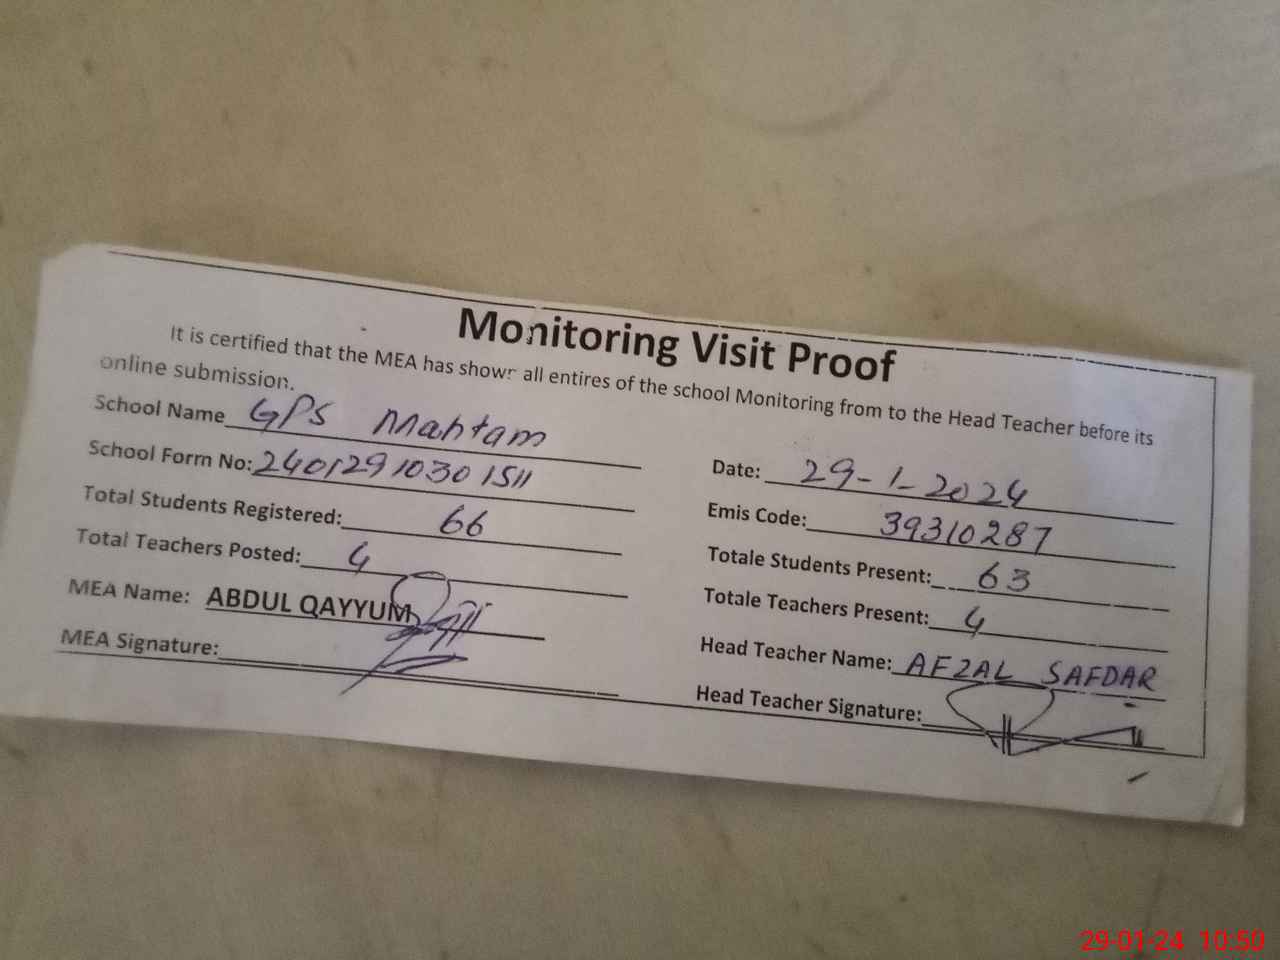 Monitoring Visit Proof
It is certified that the MEA has shown all entires of the school Monitoring from to the Head Teacher before its
online submission.
School Name GPS Mahtam
Date: 29-1-2024
School Form No: 2401291030 1511
Emis Code: 39310287
Total Students Registered: 66
Totale Students Present: 63
Total Teachers Posted: 4
Totale Teachers Present: 4
MEA Name: ABDUL QAYYUM
Head Teacher Name: AFZAL SAFDAR
MEA Signature:
Head Teacher Signature:
29-01-24 10:50